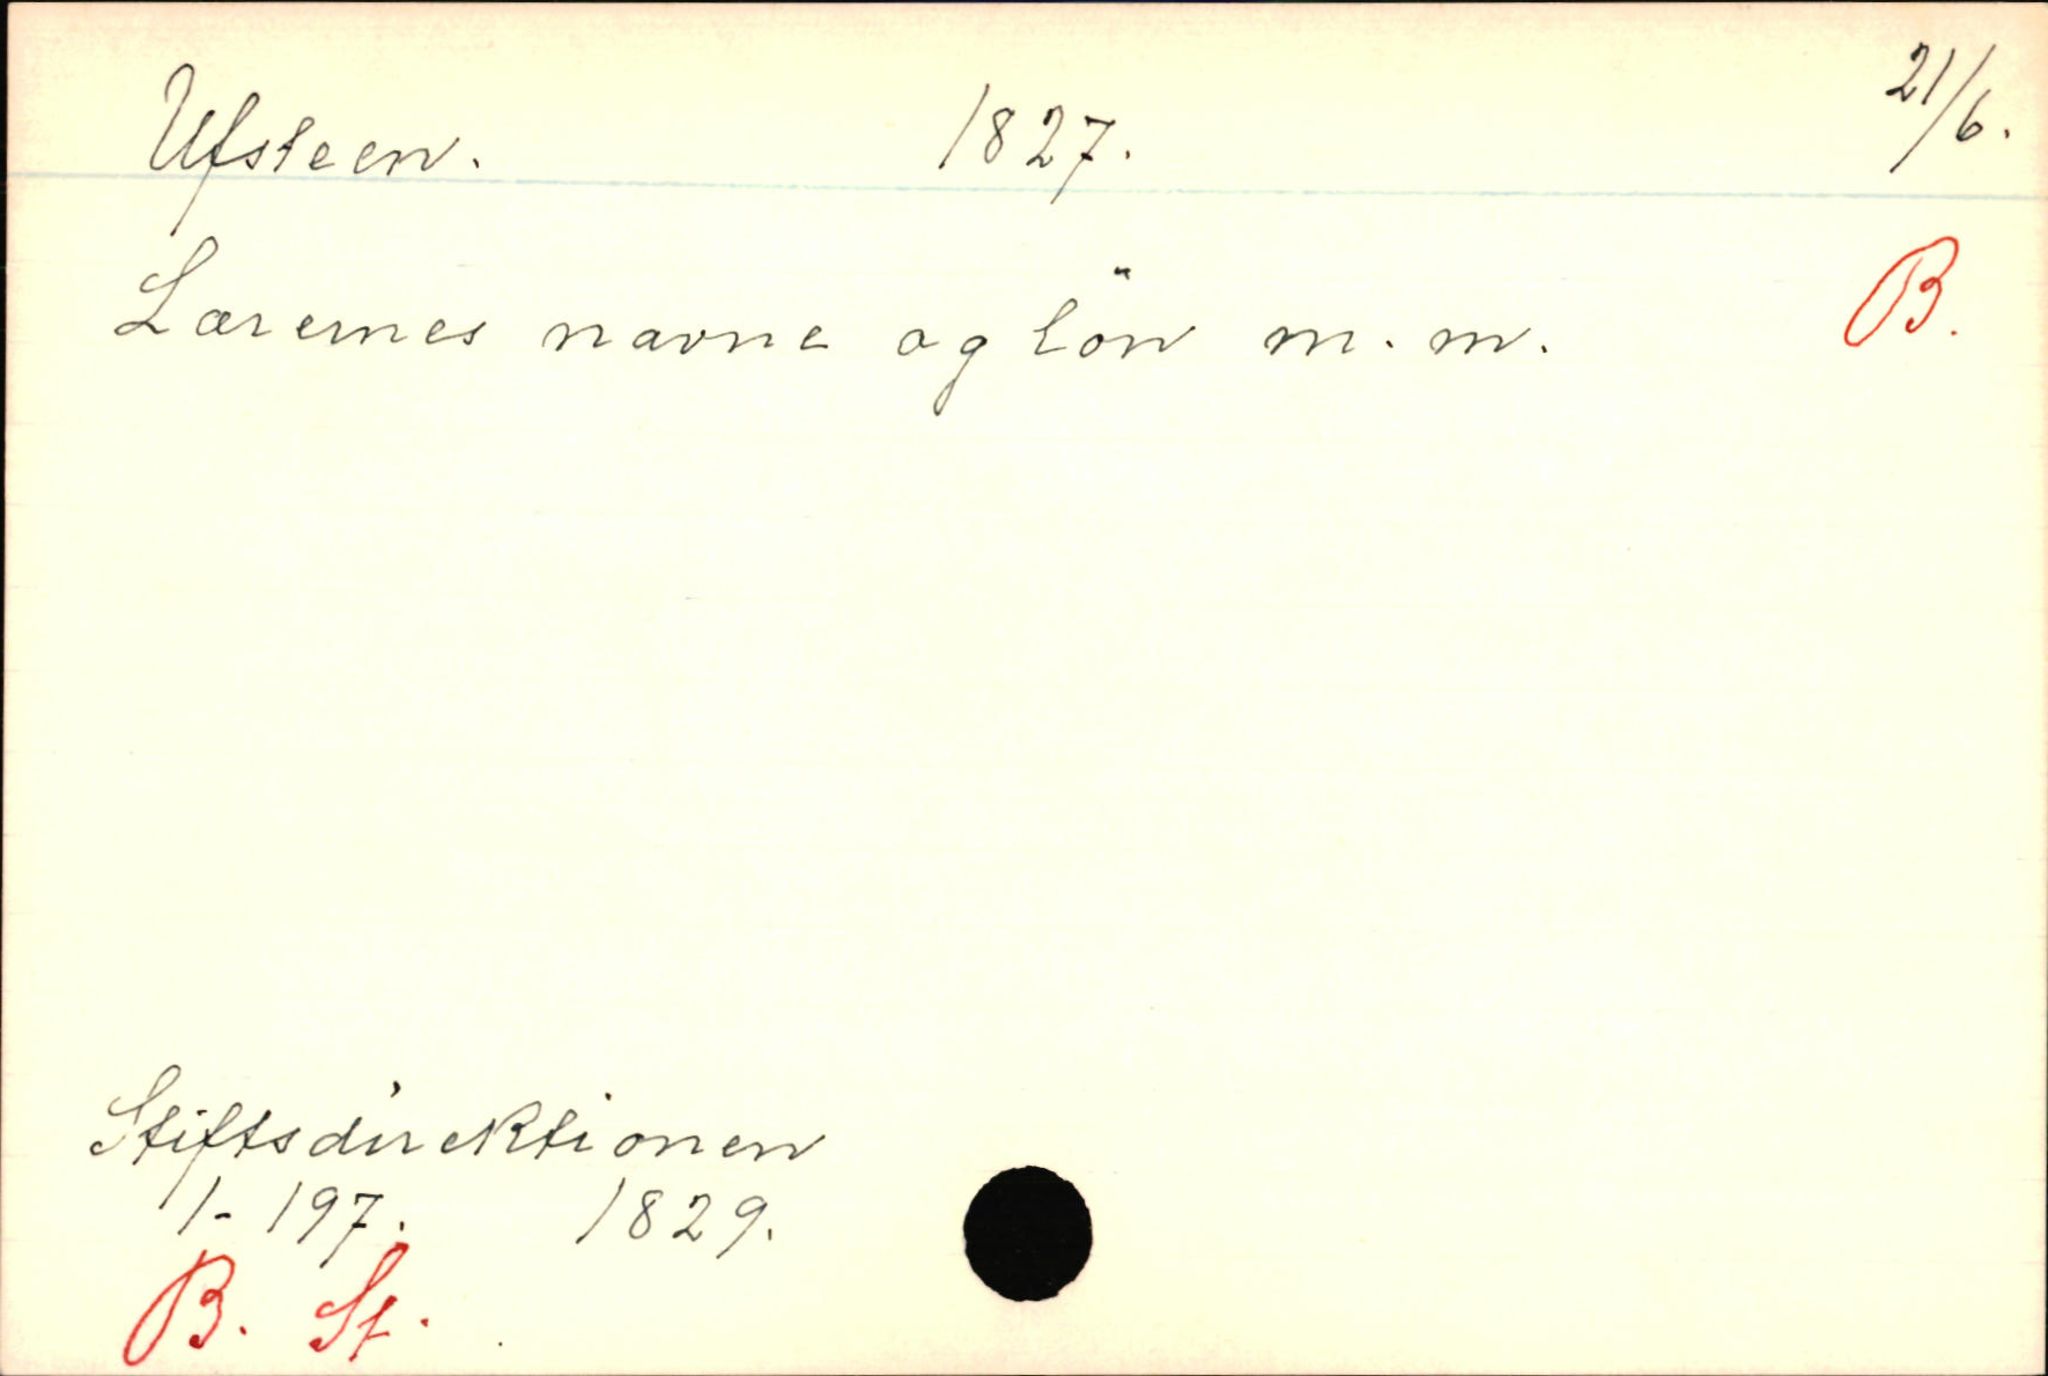 Ufsteen. 1827. 21/6.
Lærernes navne og lön m. m. B.
Stiftsdirektionen
1-197. 1829.
B. St.